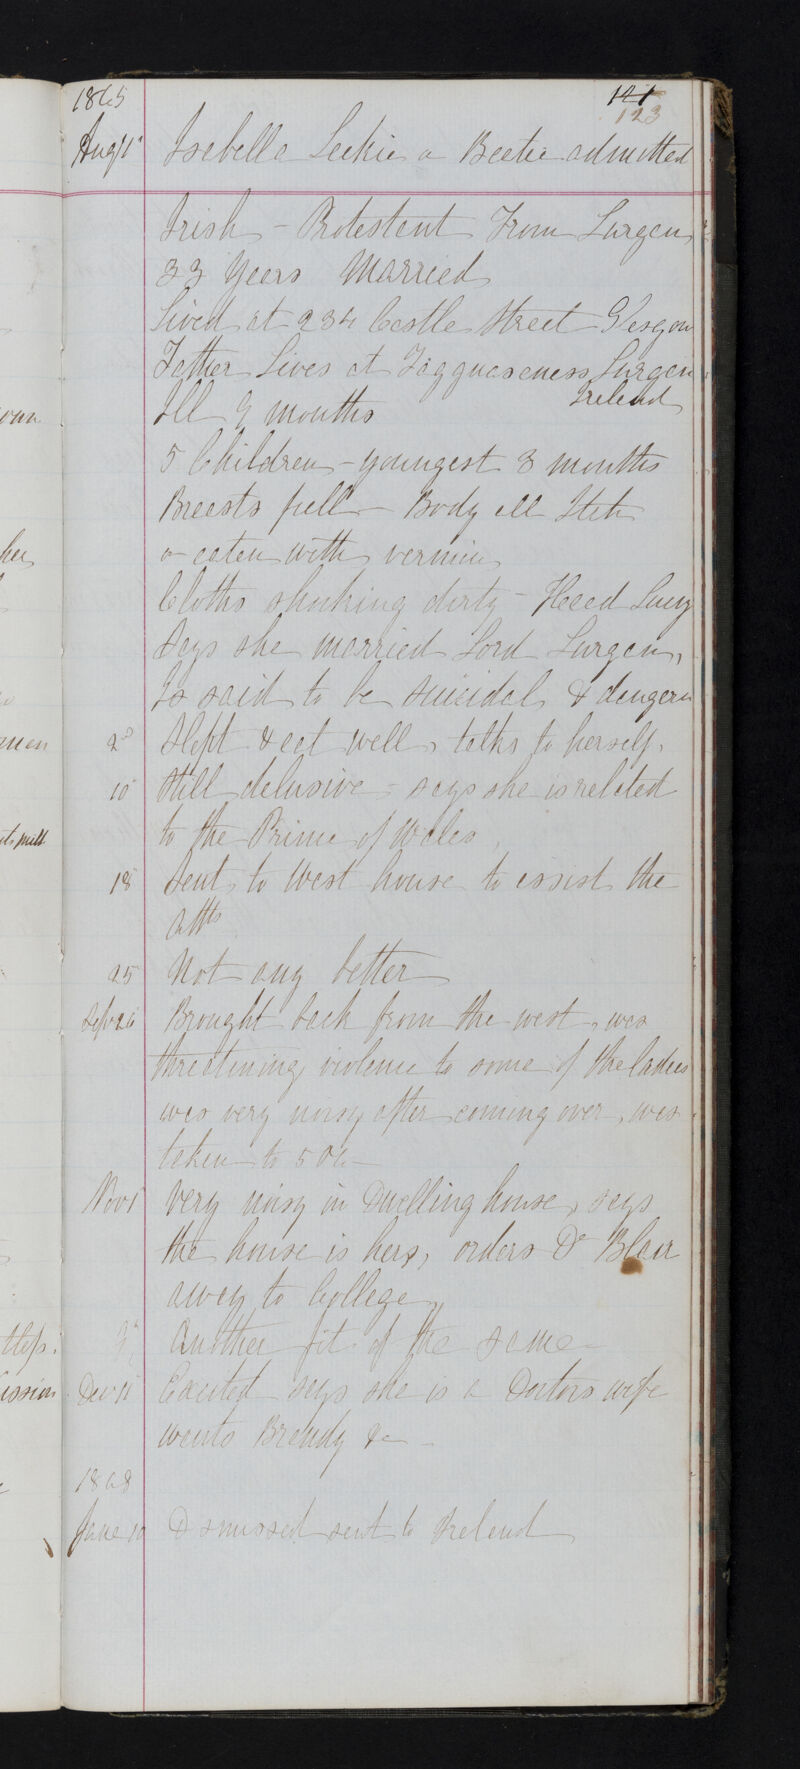 1865
121
123
Augt 1st Isabella Leckie a Beetie admitted
Irish - Protestant From Lurgan
33 Years Married
Lived at 234 Castle Street Glasgow
Father Lives at Lurgan
Ireland
Ill 9 months
5 Children - youngest 3 months
Breasts full - Body all Itch
& eaten with vermin
Cloths shocking dirty - Head Lousy
Says she married Lord Lurgan,
Is said to be suicidal & dangerous
2d Slept & eat well, talks to herself,
10 Still delusive - says she is related
to the Prince of Wales,
18 Sent to West house to assist the
atts
25 Not any better
Sept 26 Brought back from the west, was
threatening violence to some of the ladies
was very noisy after coming over, was
taken to
Nov 1 Very noisy in Dwelling house, says
the house is hers, orders Dr Blair
away to College,
Another fit of the same
Decr 11 Excited says she is a Doctors wife
wants Brandy &c
1868
June 10 Dismissed sent to Ireland